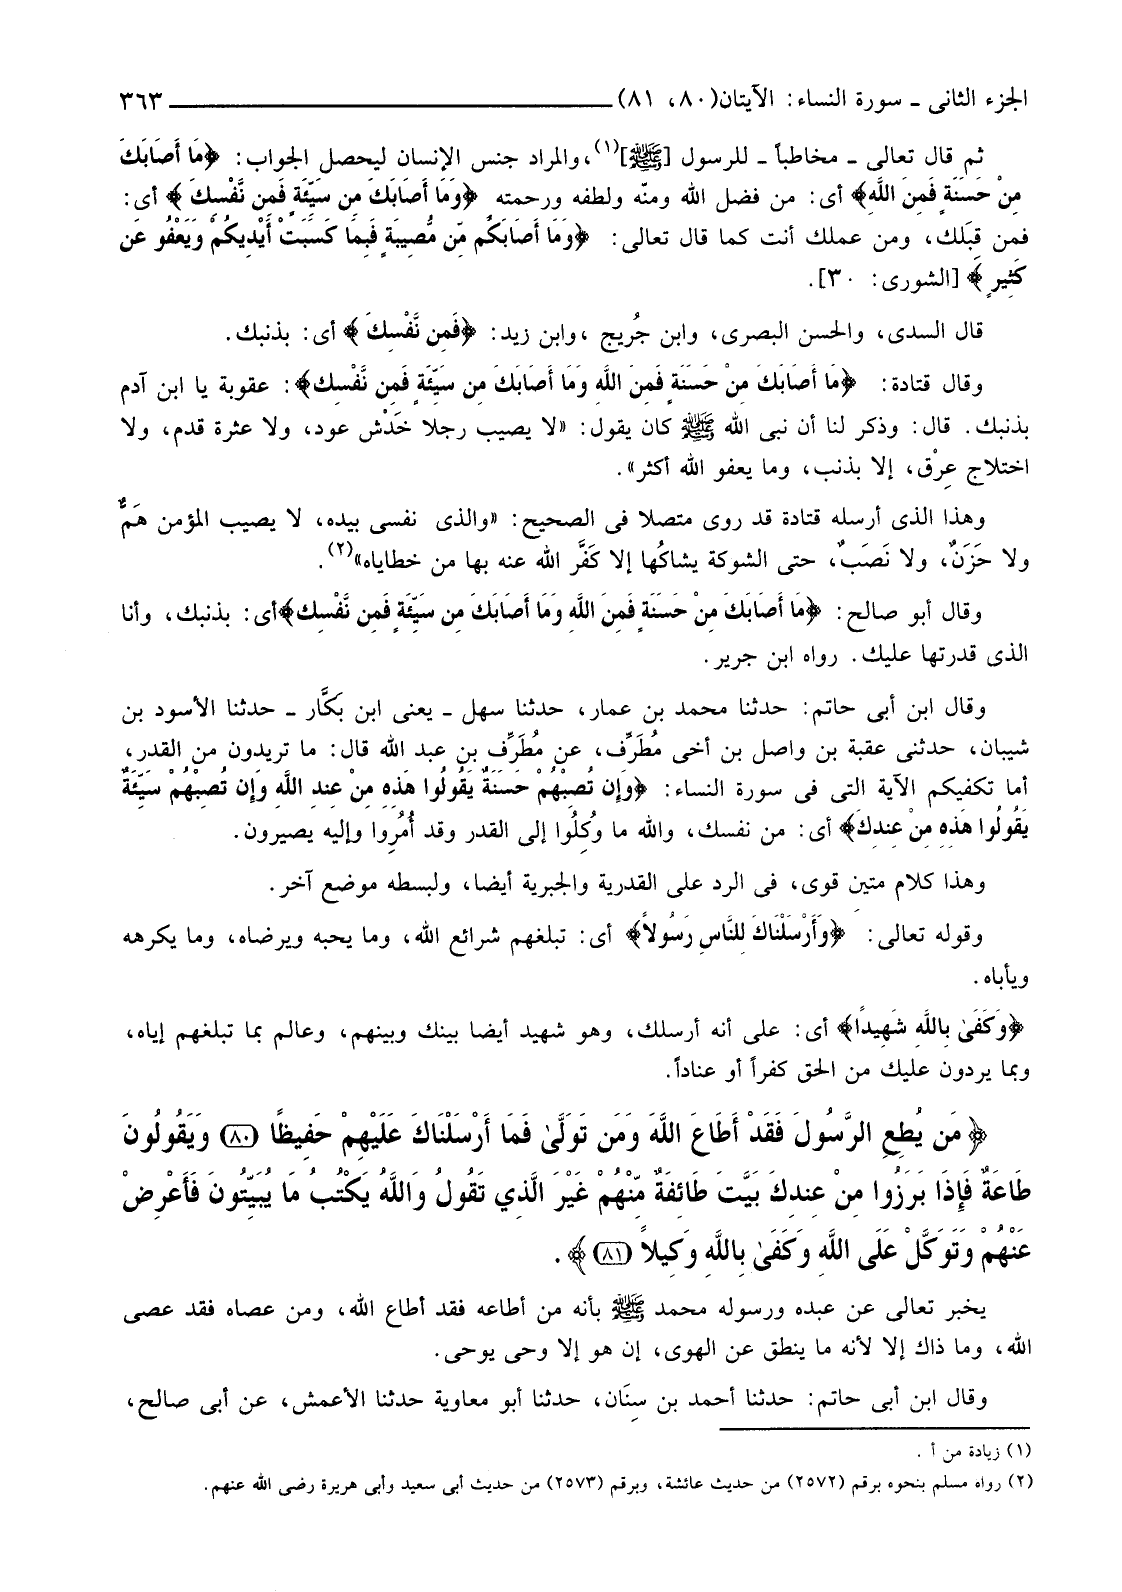 الجزء الثانى ـ سورة النساء: الآيتان(٨٠، ٨١) ٣٦٣
ثم قال تعالى ـ مخاطباً ـ للرسول [ﷺ](١)،والمراد جنس الإنسان ليحصل الجواب: ﴿مَا أَصَابَكَ
مِنْ حَسَنَةٍ فَمِنَ اللَّهِ﴾ أى: من فضل الله ومنّه ولطفه ورحمته ﴿وَمَا أَصَابَكَ مِن سَيِّئَةٍ فَمِن نَّفْسِكَ ﴾ أى:
فمن قِبَلك، ومن عملك أنت كما قال تعالى: ﴿وَمَا أَصَابَكُم مِّن مُّصِيبَةٍ فَبِمَا كَسَبَتْ أَيْدِيكُمْ وَيَعْفُو عَن
كَثِيرٍ ﴾ [الشورى: ٣٠].
قال السدى، والحسن البصرى، وابن جُريج ،وابن زيد: ﴿فَمِن نَّفْسِكَ ﴾ أى: بذنبك.
وقال قتادة: ﴿مَا أَصَابَكَ مِنْ حَسَنَةٍ فَمِنَ اللَّهِ وَمَا أَصَابَكَ مِن سَيِّئَةٍ فَمِن نَّفْسِكَ﴾: عقوبة يا ابن آدم
بذنبك. قال: وذكر لنا أن نبى الله ﷺ كان يقول: «لا يصيب رجلا خَدْش عود، ولا عثرة قدم، ولا
اختلاج عِرْق، إلا بذنب، وما يعفو الله أكثر».
وهذا الذى أرسله قتادة قد روى متصلا فى الصحيح: «والذى نفسى بيده، لا يصيب المؤمن هَمٌّ
ولا حَزَنٌ، ولا نَصَبٌ، حتى الشوكة يشاكُها إلا كَفَّر الله عنه بها من خطاياه»(٢).
وقال أبو صالح: ﴿مَا أَصَابَكَ مِنْ حَسَنَةٍ فَمِنَ اللَّهِ وَمَا أَصَابَكَ مِن سَيِّئَةٍ فَمِن نَّفْسِكَ﴾أى: بذنبك، وأنا
الذى قدرتها عليك. رواه ابن جرير.
وقال ابن أبى حاتم: حدثنا محمد بن عمار، حدثنا سهل ـ يعنى ابن بَكَّار ـ حدثنا الأسود بن
شيبان، حدثنى عقبة بن واصل بن أخى مُطَرِّف، عن مُطَرِّف بن عبد الله قال: ما تريدون من القدر،
أما تكفيكم الآية التى فى سورة النساء: ﴿وَإِن تُصِبْهُمْ حَسَنَةٌ يَقُولُوا هَذِهِ مِنْ عِندِ اللَّهِ وَإِن تُصِبْهُمْ سَيِّئَةٌ
يَقُولُوا هَذِهِ مِنْ عِندِكَ﴾ أى: من نفسك، والله ما وُكِلُوا إلى القدر وقد أُمُرِوا وإليه يصيرون.
وهذا كلام متين قوى، فى الرد على القدرية والجبرية أيضا، ولبسطه موضع آخر.
وقوله تعالى: ﴿وَأَرْسَلْنَاكَ لِلنَّاسِ رَسُولاً﴾ أى: تبلغهم شرائع الله، وما يحبه ويرضاه، وما يكرهه
ويأباه.
﴿وَكَفَىٰ بِاللَّهِ شَهِيدًا﴾ أى: على أنه أرسلك، وهو شهيد أيضا بينك وبينهم، وعالم بما تبلغهم إياه،
وبما يردون عليك من الحق كفراً أو عناداً.
﴿مَن يُطِعِ الرَّسُولَ فَقَدْ أَطَاعَ اللَّهَ وَمَن تَوَلَّىٰ فَمَا أَرْسَلْنَاكَ عَلَيْهِمْ حَفِيظًا (٨٠) وَيَقُولُونَ
طَاعَةٌ فَإِذَا بَرَزُوا مِنْ عِندِكَ بَيَّتَ طَائِفَةٌ مِّنْهُمْ غَيْرَ الَّذِي تَقُولُ وَاللَّهُ يَكْتُبُ مَا يُبَيِّتُونَ فَأَعْرِضْ
عَنْهُمْ وَتَوَكَّلْ عَلَى اللَّهِ وَكَفَىٰ بِاللَّهِ وَكِيلاً (٨١)﴾.
يخبر تعالى عن عبده ورسوله محمد ﷺ بأنه من أطاعه فقد أطاع الله، ومن عصاه فقد عصى
الله، وما ذاك إلا لأنه ما ينطق عن الهوى، إن هو إلا وحى يوحى.
وقال ابن أبى حاتم: حدثنا أحمد بن سِنَان، حدثنا أبو معاوية حدثنا الأعمش، عن أبى صالح،
(١) زيادة من أ .
(٢) رواه مسلم بنحوه برقم (٢٥٧٢) من حديث عائشة، وبرقم (٢٥٧٣) من حديث أبى سعيد وأبى هريرة رضى الله عنهم.